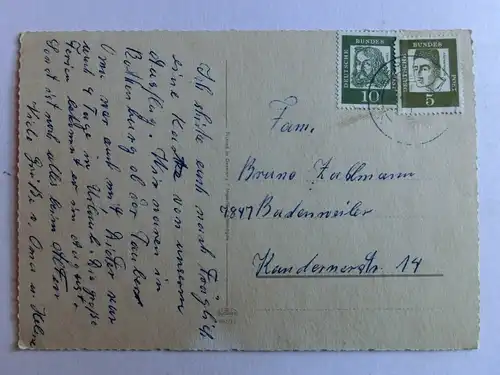 Ich schicke euch nach
eine Karte von unserem
Ausflug. Wir waren in
Rothenburg ob der Tauber
Oma war auch mit, Dieter war
auch 4 Tage in Urlaub die große
Ferien bekommt er im August.
Sonst ist noch alles beim Alten
Viele Grüße v. Oma u.
DEUTSCHE BUNDES POST
10
DEUTSCHE BUNDES POST
5
Fam.
Bruno Kallmann
7847 Badenweiler
Kandernerstr. 14